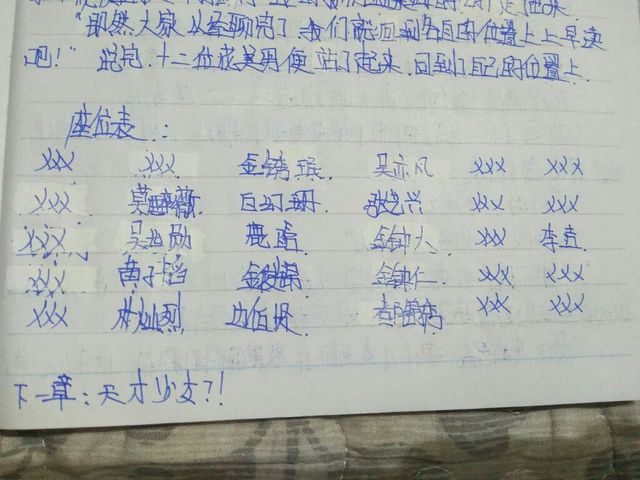 "既然大家已经聊完了,我们就回到各自的位置上上早读
吧!"说完,十二位花美男便站了起来,回到了自己的位置上.
座位表:
xxx xxx 金钟珉 吴亦凡 xxx xxx
xxx 白幻珊 张艺兴 xxx xxx
xxx 吴世勋 鹿晗 金钟大 xxx 李真
xxx 黄子韬 金俊绵 金钟仁 xxx xxx
xxx 朴灿烈 边伯贤 都暻秀 xxx xxx
下一章:天才少女?!